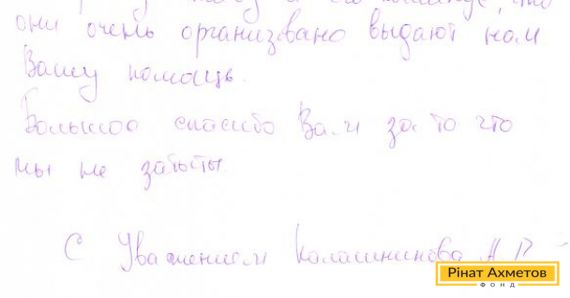 они очень организвано выдают нам
Вашу помощь.
Большоа спасибо Вам за то что
мы не забыты.
С Уважением Калашникова А В
Рінат Ахметов
ФОНД